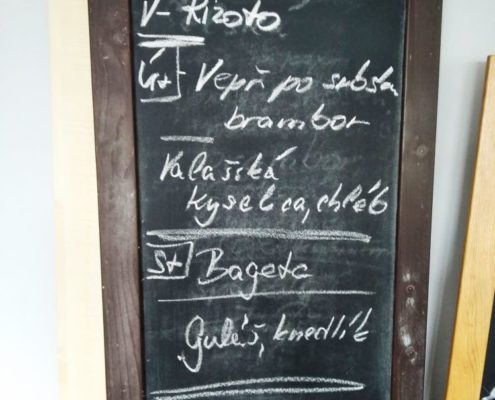 V- Rizoto
Út - Vepř po srbsku
brambor
Valašská
kyselica, chléb
St Bageta
Guláš, knedlík